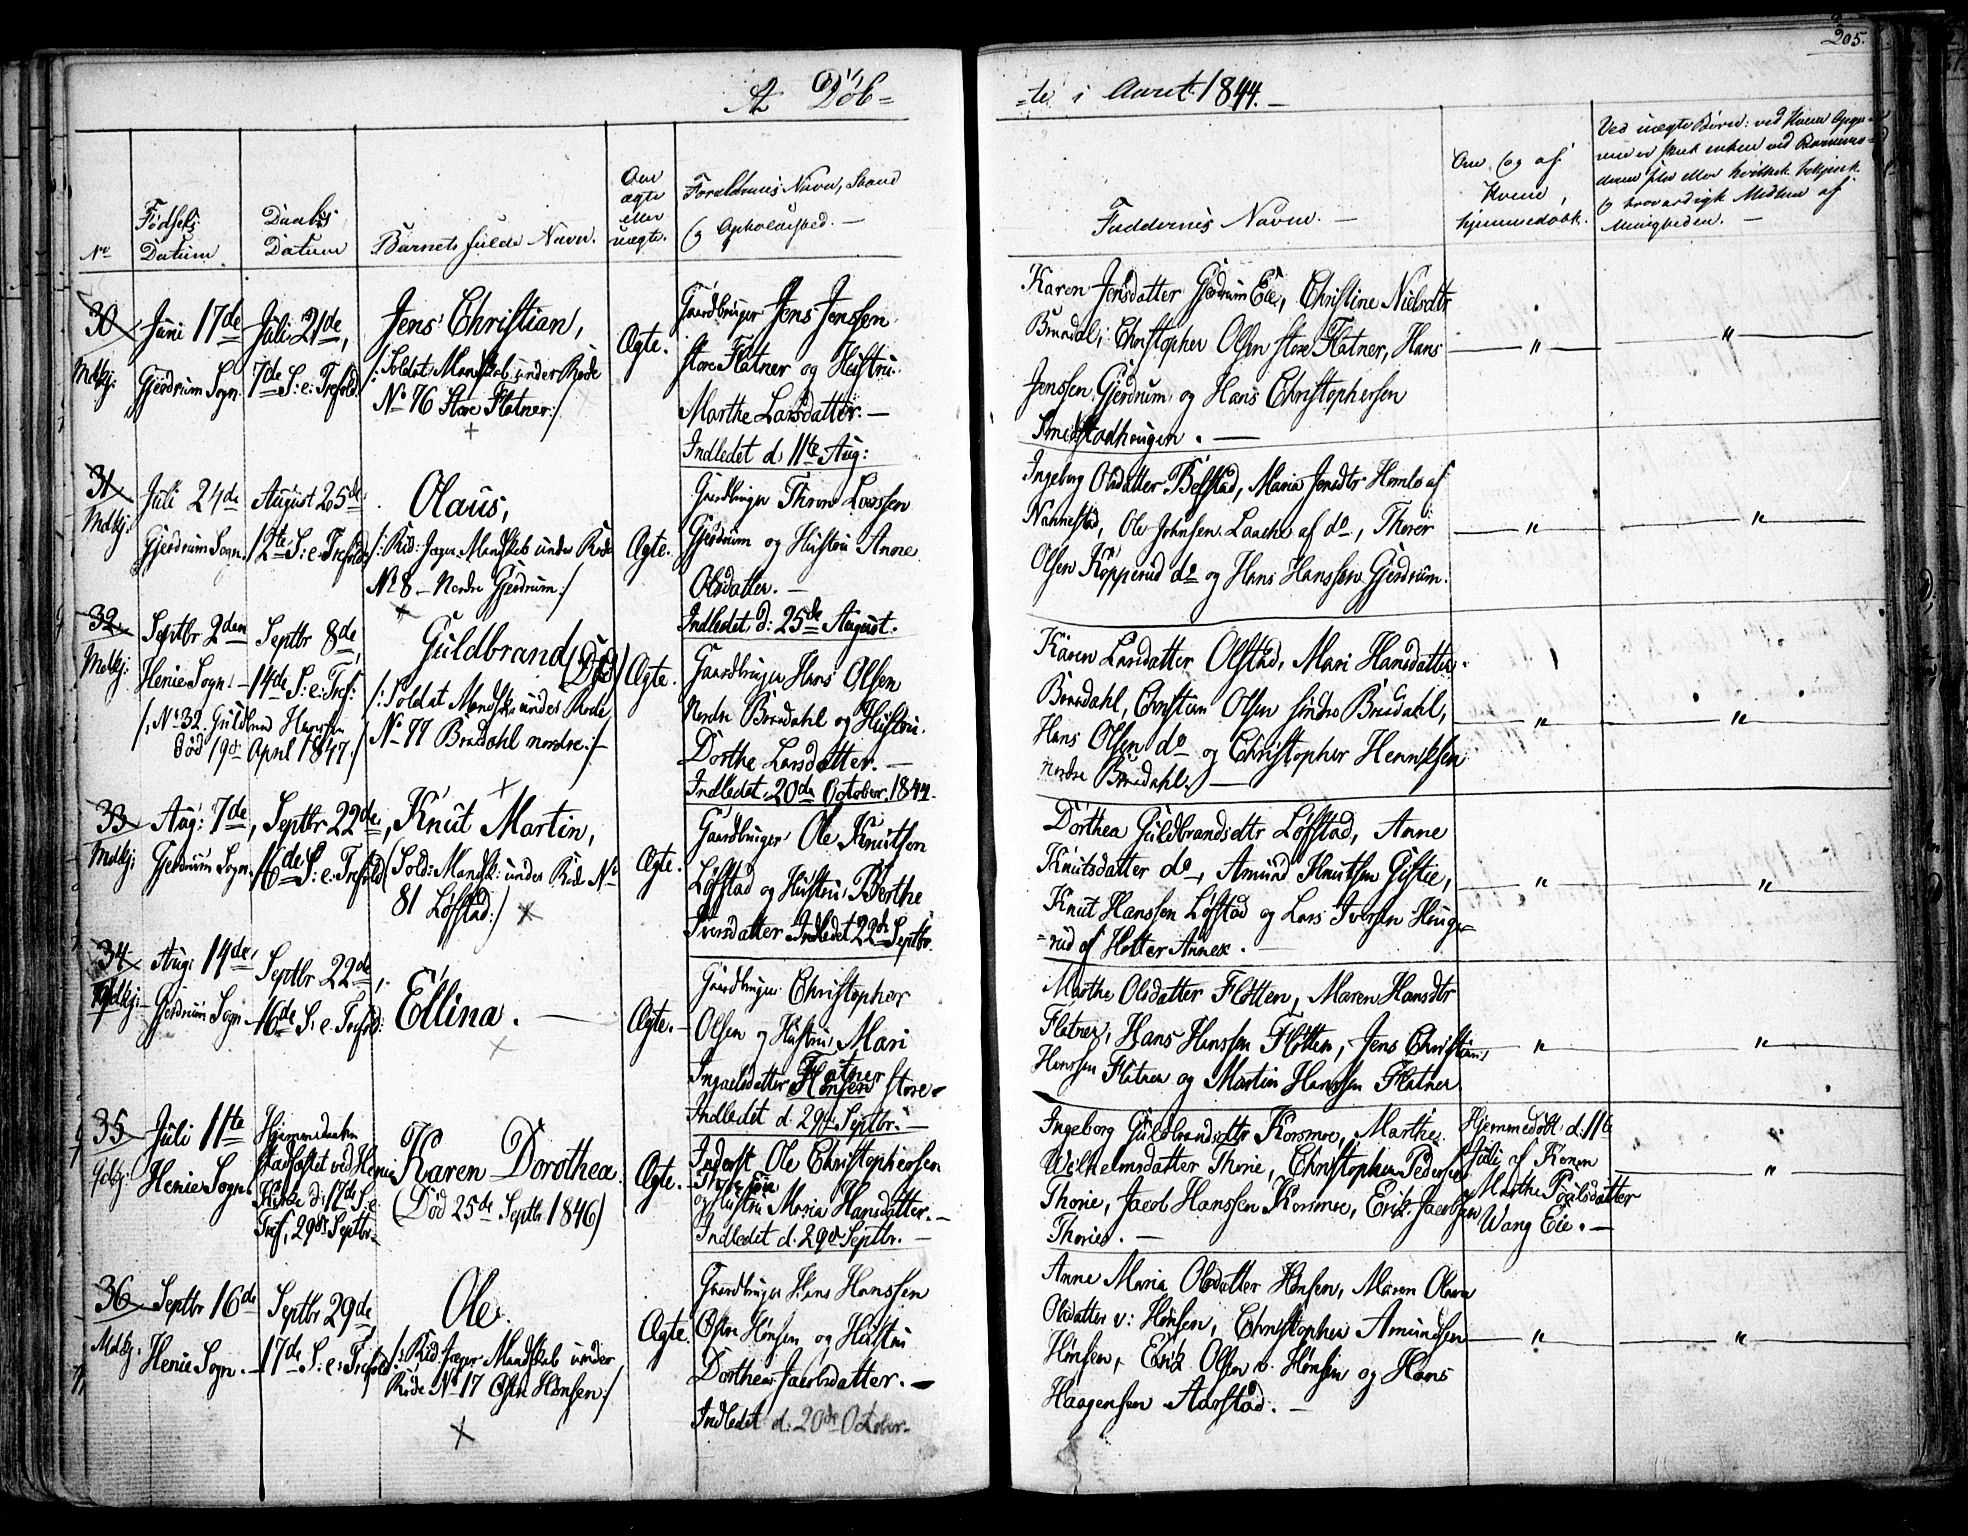 205.
A Döb=
=te i Aaret 1844.
No
Fødsels
Datum.
Daabs
Datum
Barnets fulde Navn.
Om
ægte
eller
uægte.
Forældrenes Navn, Stand
og Opholdssted. —
Faddernes Navne. —
Om og af
hvem
hjemmedøbt.
Ved uægte Børn: ved hvem
Menigheden. —
30
Mdkj:
Juni 17de
Gjerdrum Sogn.
Juli 21de,
7de S: e: Trefold.
Jens Christian,
/: Soldat Mandskab under Rode
No 76 Store Flatner:/
+
Ægte.
Gaardbruger Jens Jenssen
store Flatner og Hustru
Marthe Larsdatter. —
Indledet d. 11te Aug:
Karen Jensdatter Gjerdrum Eie, Christine Nielsdtr
Brudal, Christopher Olsen store Flatner, Hans
Jenssen Gjerdrum og Hans Christophersen
Smedstadhougen. —
— " —
— " —
31
Mdkj:
Juli 24de
Gjerdrum Sogn.
August 25de
12te S: e: Trefold
Olaus,
/: Rid: Jæger Mandskab under Rode
No 8 – Nordre Gjerdrum:/
+
Ægte.
Gaardbruger Thron Larssen
Gjerdrum og Hustru Anne
Olsdatter. —
Indledet d: 25de August.
Ingeborg Olsdatter Bølstad, Maria Jensdtr Homle af
Nannestad, Ole Johnsen Laache af do, Thorer
Olsen Kopperud do og Hans Hanssen Gjerdrum.
— " —
— " —
32
Mdkj:
Septbr 2den
Henie Sogn. —
/: No 32. Guldbrand Hanssen
død 19de April 1847:/
Septbr 8de,
14de S: e: Tref:
Guldbrand (Død)
/: Soldat Mandsk: under Rode
No 77 Bradahl nordre:/
+
Ægte.
Gaardbruger Hans Olsen
Nordre Bradahl og Hustru
Dorthe Larsdatter. —
Indledet 20de October. 1844.
Karen Larsdatter Olstad, Mari Hansdatter
Bradahl, Christian Olsen søndre Bradahl,
Hans Olsen do og Christopher Henriksen
nordre Bradahl. —
— " —
— " —
33
Mdkj:
Aug: 7de,
Gjerdrum Sogn.
Septbr 22de,
16de S: e: Trefold
Knut Martin,
(: Sold: Mandsk: under Rode No
81 Løfstad:)
+
Ægte.
Gaardbruger Ole Knutsen
Løfstad og Hustru Berthe
Iversdatter Indledet 22de Septbr.
Dorthea Guldbrandsdtr Løfstad, Anne
Knutsdatter do, Amund Knutsen Gistie,
Knut Hanssen Løfstad og Lars Iversen Houge=
=rud af Holter Annex. —
— " —
— " —
34
Qdkj:
Aug: 14de,
Gjerdrum Sogn. —
Septbr 22de,
16de S: e: Trefold:
Ellina. —
+
Ægte.
Gaardbruger Christopher
Olsen og Hustru Mari
Flatner
Ingaelsdatter Hønsen store. —
Indledet d. 29de Septbr. —
Marthe Olsdatter Fløtten, Maren Hansdtr
Flatner, Hans Hanssen Fløtten, Jens Christian
Hanssen Flatner og Martin Hanssen Flatner.
— " —
— " —
35
Qdkj:
Juli 11te
Henie Sogn
Hjemmedøbt
Stadfæstet ved Henie
Kirke d: 17de S: e:
Tref, 29de Septbr. —
Karen Dorothea.
(Død 25de Septbr 1846)
Ægte.
Inderst Ole Christophersen
Thorie Eie
og Hustru Maria Hansdatter. —
Indledet d. 29de Septbr. —
Ingeborg Guldbrandsdtr Korsmoe, Marthe
Wilhelmsdatter Thorie, Christopher Pedersen
Thorie, Jacob Hanssen Korsmoe, Erik Jacobsen
Thorie. —
Hjemmedøbt d: 11te
Juli af Konen
Marthe Poulsdatter
Wang Eie. —
— " —
36
Mdkj:
Septbr 16de
Henie Sogn. —
Septbr 29de
17de S: e: Trefold
Ole.
/: Rid. Jæger Mandskab under
Rode No 17 Østre Hønsen:/
+
Ægte.
Gaardbruger Hans Hanssen
Østre Hønsen og Hustru
Dorthea Jacobsdatter. —
Indledet d: 20de October.
Anne Maria Olsdatter Hønsen, Maren Olava
Olsdatter v: Hønsen, Christopher Amundsen
Hønsen, Erik Olsen v. Hønsen og Hans
Haagensen Aarstad. —
— " —
— " —